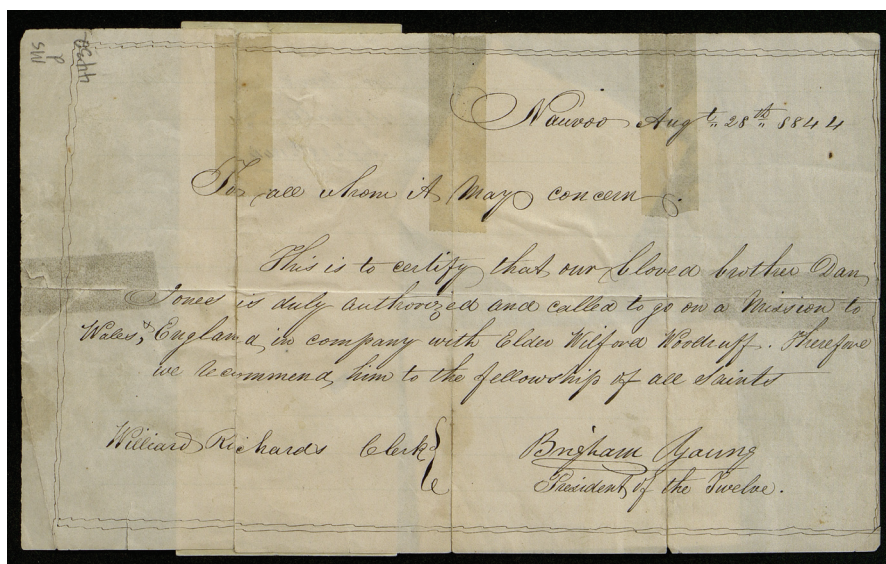 MS
d
4450
Nauvoo Augt 28th 1844
To all whom it May concern.
This is to certify that our bloved brother Dan
Jones is duly authorized and called to go on a Mission to
Wales, & England, in company with Elder Wilford Woodruff. Therefore
we recommend him to the fellowship of all saints
Williard Richards Clerk
Brigham Young
President of the Twelve.